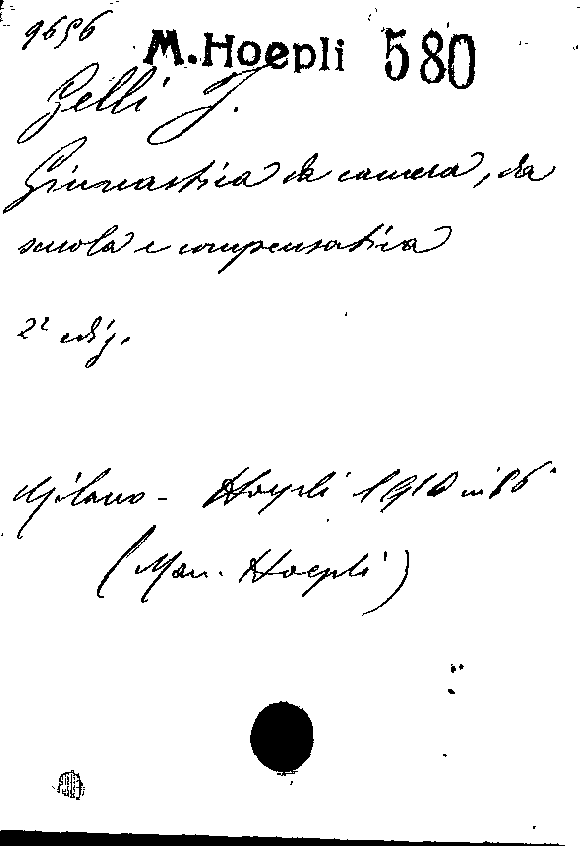 9656
M. Hoepli 580
Gelli J.
Ginnastica da camera, da
scuola e compensativa
2ª ediz.
Milano - Hoepli 1910 in 16°
(Man. Hoepli)